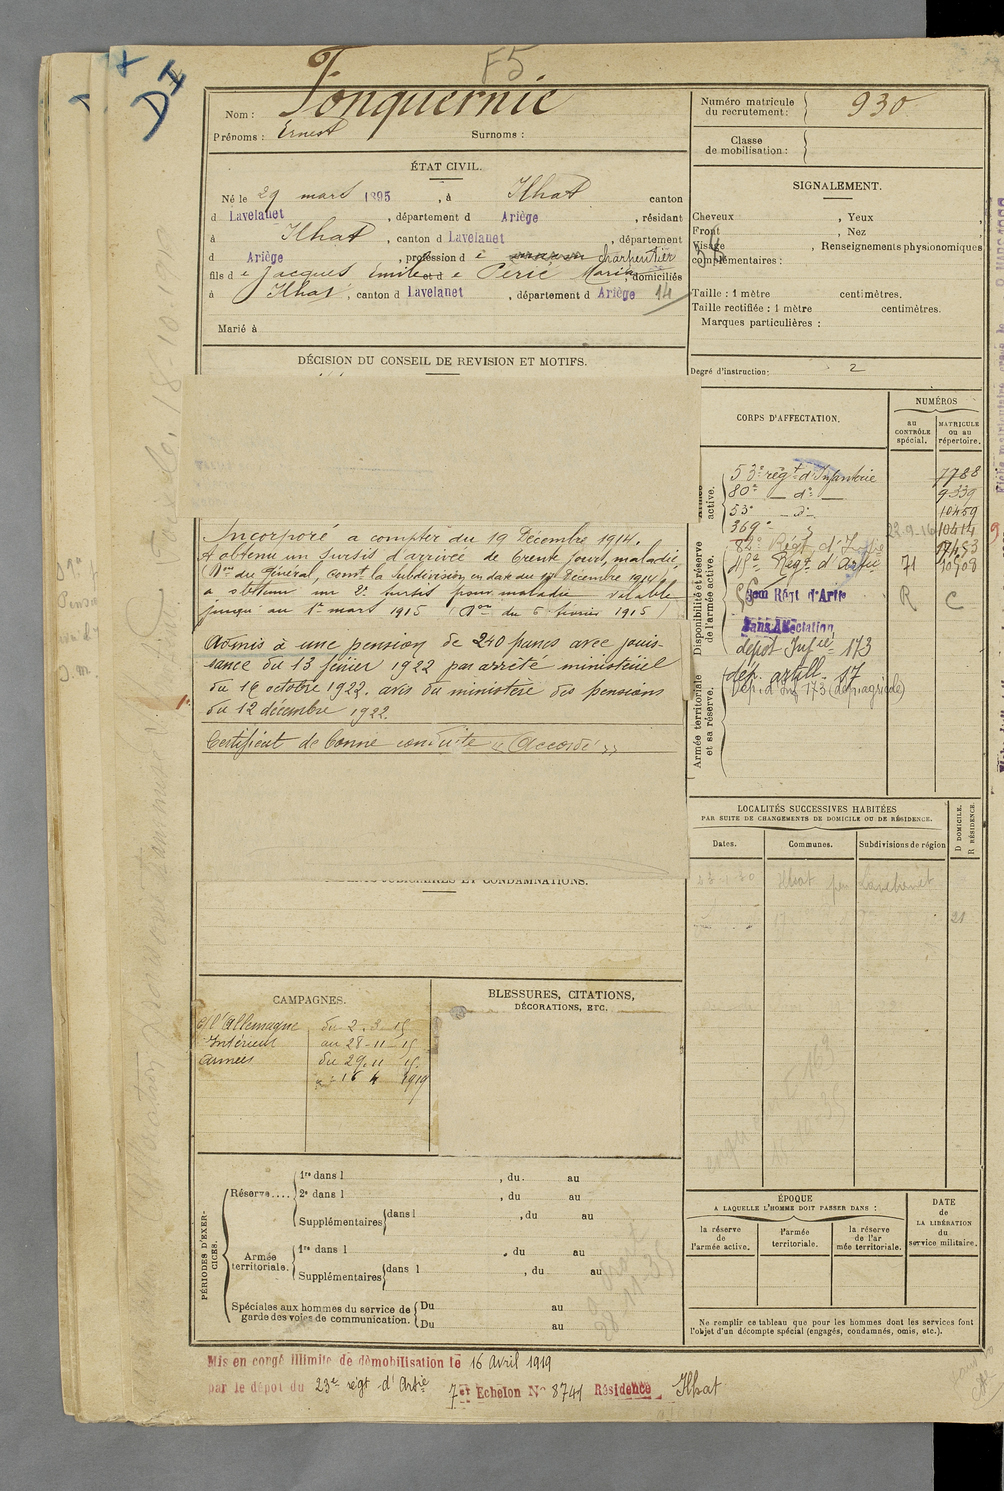 F5
DI
Nom : Fonquernie
Prénoms : Ernest Surnoms :
Numéro matricule du recrutement : 930
Classe de mobilisation :
ÉTAT CIVIL.
Né le 29 mars 1895, à Ilhat canton
d Lavelanet, département d Ariège, résidant
à Ilhat, canton d Lavelanet, département
d Ariège, profession d charpentier
fils de Jacques Emile et de Péric Marie, domiciliés
à Ilhat, canton d Lavelanet, département d Ariège 14
Marié à
SIGNALEMENT.
Cheveux , Yeux ,
Front , Nez ,
Visage , Renseignements physionomiques
complémentaires :
Taille : 1 mètre centimètres.
Taille rectifiée : 1 mètre centimètres.
Marques particulières :
Degré d'instruction : 2
DÉCISION DU CONSEIL DE REVISION ET MOTIFS.
Incorporé a compter du 19 Décembre 1914.
A obtenu un sursis d'arrivée de trente jours, maladie,
Don du Général, comt la Subdivision en date du Décembre 1914
a obtenu un 2e sursis pour maladie valable
jusqu'au 1er mars 1915 (Don du 5 février 1915)
Admis à une pension de 240 francs avec jouis-
sance du 13 février 1922 par arrêté ministériel
du 16 octobre 1922. avis du ministère des pensions
du 12 décembre 1922.
Certificat de bonne conduite « Accordé »
CORPS D'AFFECTATION.
NUMÉROS
au CONTRÔLE spécial.
MATRICULE ou au répertoire.
Armée active.
53e régt d'Infanterie 7788
80e — do — 9339
53e — do — 10459
369e 22-9-16 10414
82e Régt d'
45e Régt d'Artie 71 10508
Régt d'Artie R C
Sans Affectation
dépôt Infie 173
dép. artill. 17
Dép. d'Inf 173 (dép. agricole)
Disponibilité et réserve de l'armée active.
Armée territoriale et sa réserve.
LOCALITÉS SUCCESSIVES HABITÉES
PAR SUITE DE CHANGEMENTS DE DOMICILE OU DE RÉSIDENCE.
Dates. Communes. Subdivisions de région
D DOMICILE. R RÉSIDENCE.
Ilhat par Lavelanet
21
JUDICIAIRES ET CONDAMNATIONS.
CAMPAGNES.
c/ l'Allemagne
Intérieur du 2.3.15 au 28-11-15
Armées du 29.11.15 au 16 4 1919
BLESSURES, CITATIONS,
DÉCORATIONS, ETC.
PÉRIODES D'EXERCICES.
Réserve.... 1re dans l , du au
2e dans l , du au
Supplémentaires dans l , du au
Armée territoriale. 1re dans l , du au
Supplémentaires dans l , du au
Spéciales aux hommes du service de garde des voies de communication. Du au
Du au
ÉPOQUE
A LAQUELLE L'HOMME DOIT PASSER DANS :
la réserve de l'armée active.
l'armée territoriale.
la réserve de l'armée territoriale.
DATE de LA LIBÉRATION du service militaire.
Ne remplir ce tableau que pour les hommes dont les services font
l'objet d'un décompte spécial (engagés, condamnés, omis, etc.).
Mis en congé illimité de démobilisation le 16 Avril 1919
par le dépôt du 23e régt d'Artie 7er Echelon No 8741 Résidence Ilhat